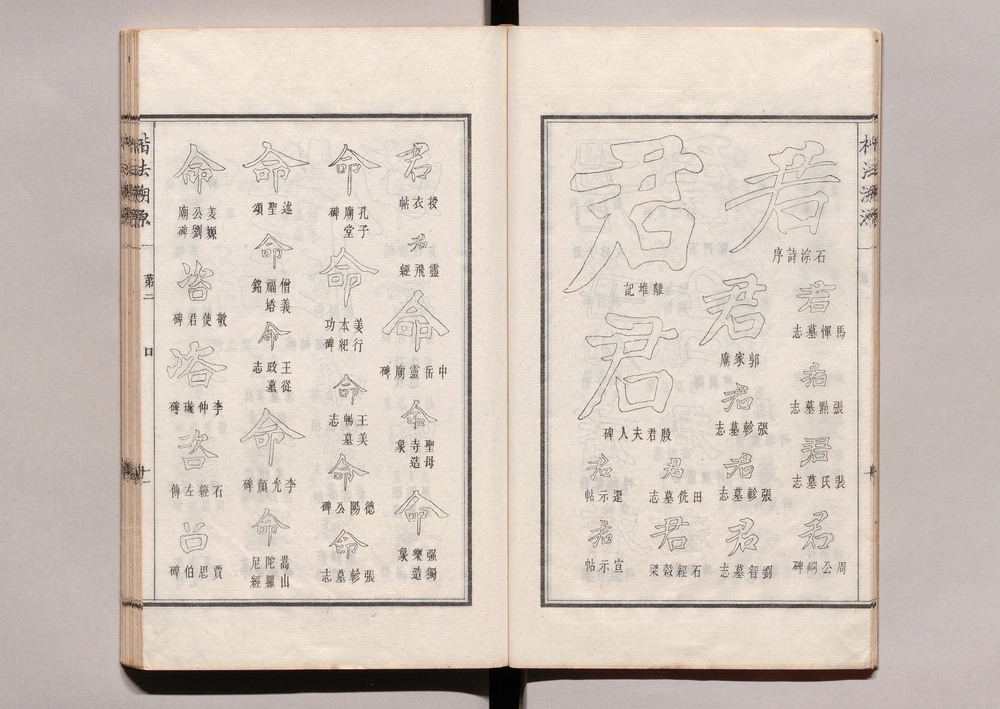 君
石淙詩序
君
馬惲墓志
君
張點墓志
君
裴氏墓志
君
周公祠碑
君
離堆記
君
郭家廟
君
張軫墓志
君
張軫墓志
君
劉智墓志
君
殷君夫人碑
君
田侁墓志
君
石經穀梁
君
還示帖
君
宣示帖
君
授衣帖
君
靈飛經
命
中岳靈廟碑
命
聖母寺造象
命
强獨樂造象
命
孔子廟堂碑
命
姜行本紀功碑
命
王美暢墓志
命
德陽公碑
命
張軫墓志
命
述聖頌
命
僧義福塔銘
命
王從政墓志
命
李光顏碑
命
嵩山陀羅尼經
命
姜嫄公劉廟碑
咨
敬使君碑
咨
李仲璇碑
咨
石經左傳
召
賈思伯碑
楷法溯源
第二
口
十一